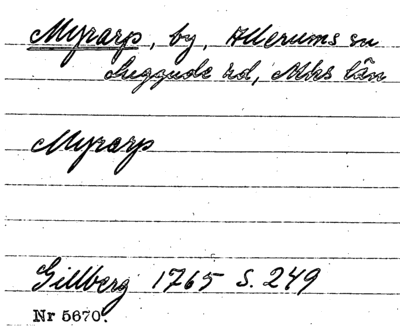 Myrarp, by, Allerums sn
Luggude hd, Mlhs län
Myrarp
Gillberg 1765 S. 249
Nr 5670.